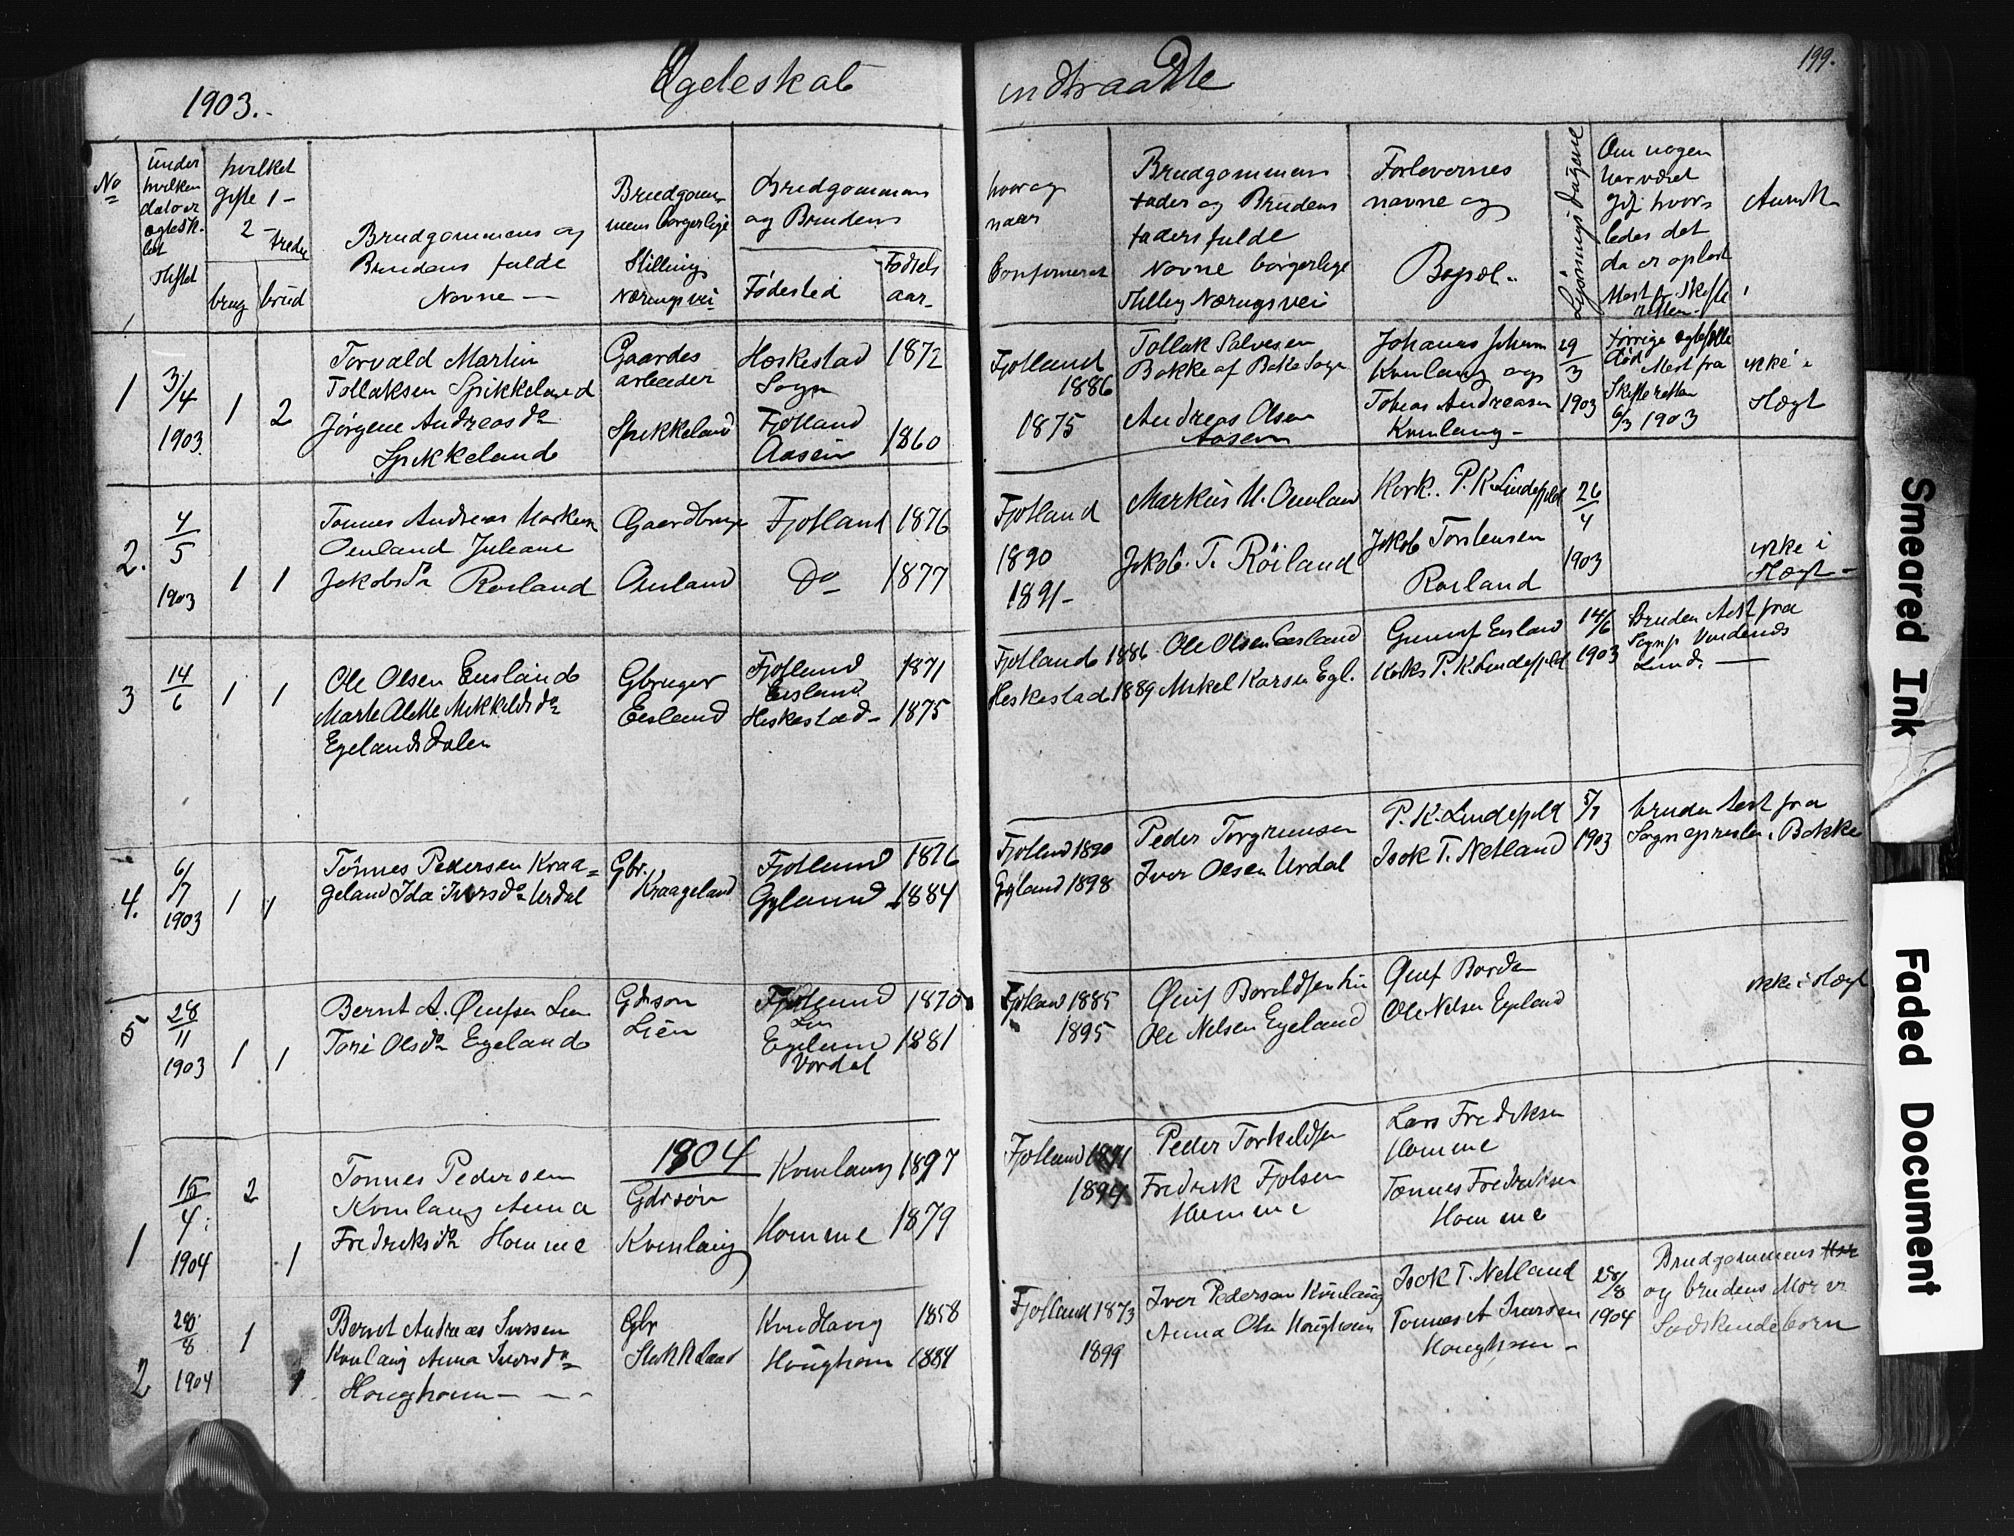 1903.
Ægteskab
indtraadte
199.
No
under
hvilken
dato er
ægtesk-
bet
stiftet
hvilket
gifte 1-
2 - tredie
brug
brud
Brudgommens og
Brudens fulde
Navne —
Brudgom-
mens borgerlige
Stilling
Næringsvei
Brudgommens
og Brudens
Fødested
Fødsels
aar
hvor og
naar
Confirmeret
Brudgommens
fader og Brudens
faders fulde
Navne borgerlige
Stilling Næringsvei
Forlovernes
navne og
Bopæl.
Lysnings dagene
Om nogen
har været
gift hvor-
ledes det
da er opløst
Attest fr Skifte
retten.
Anmk
1
3/4
1903.
1
2
Torvald Martin
Tollaksen Spikkeland
Jørgine Andreasda
Spikkeland
Gaardes
arbeider
Spikkeland
Heskestad
Sogn
Fjotland
Aasen
1872
1860
Fjotland
1886
1875
Tollak Salvesen
Bakke af Bakke Sogn
Andreas Olsen
Aasen
Johannes Johann
Kvinlaug og
Tobias Andreasen
Kvinlaug -
29/3
1903
forrige ægtefælle
død Attest fra
Skifteretten
6/3 1903
ikke i
Slægt
2.
4/5
1903
1
1
Tønnes Andreas Markus
Omland Juliane
Jakobsda Røiland
Gaardbruge
Omland
Fjotland
Do
1876
1877
Fjotland
1890
1891-
Markus M. Omland
Jakob. T. Røiland
Kirk. P. K. Lindefjeld
Jakob Torstensen
Røiland
26/4
1903
ikke i
Slægt -
3
14/6
1
1
Ole Olsen Eesland
Marte Alette Mikkelsda
Egelandsdalen
Gbruger
Eesland
Fjotland
Eesland
Heskestad -
1871
1875
Fjotland 1886
Heskestad 1889
Ole Olsen Eesland
Mikel Larsen Egl.
Gunuf Eesland
Kirks P. K. Lindefjeld
14/6
1903
Bruden Attst fra
Sognp
Lund. —
4.
6/7
1903
1
1
Tønnes Pedersen Kraa=
geland Ida Iversda Urdal
Gbr.
Kraageland
Fjotland
Gyland
1876
1884
Fjotland 1890
Gyland 1898
Peder Torgrimsen
Iver Olsen Urdal
P. K. Lindefjeld
Isak T. Netland
5/7
1903
bruden Attest fra
Sognepresten i Bakke
5
28/11
1903
1
1
Bernt A. Ønufsen Lien
Tori Olsda Egeland
Gdrson
Lien
Fjotland
Lien
Egeland
Vordal
1870
1881
Fjotland 1885
1895
Ønuf Baroldsen Lien
Ole Nelsen Egeland
Ønuf Bardsn
Ole Nelsen Egeland
ikke i Slægt
1904
1
15/4
1904
2
1
Tønnes Pedersen
Kvinlaug Anna
Fredriksda Homme
Gdrsøn
Kvinlaug
Kvinlaug
Homme
1897
1879
Fjotland 1891
1894
Peder Torkeldsen
Fredrik Fjolsen
Homme
Lars Fredriksen
Homme
Tønnes Fredriksen
Homme
2
28/8
1904
1
1
Bernt Andreas Iversen
Kvinlaug Anna Iversda
Houghom - - -
Gbr
Kvinlaug
Houghom
1858
1884
Fjotland 1873
1899
Iver Pedersen Kvinlaug
Anna Olsn Houghom
Isak T. Netland
Tønnes A Iversen
Houghom -
28/8
1904
Brudgommens Mor
og brudens Mor er
Sødskendebørn
Smeared Ink
Faded Document